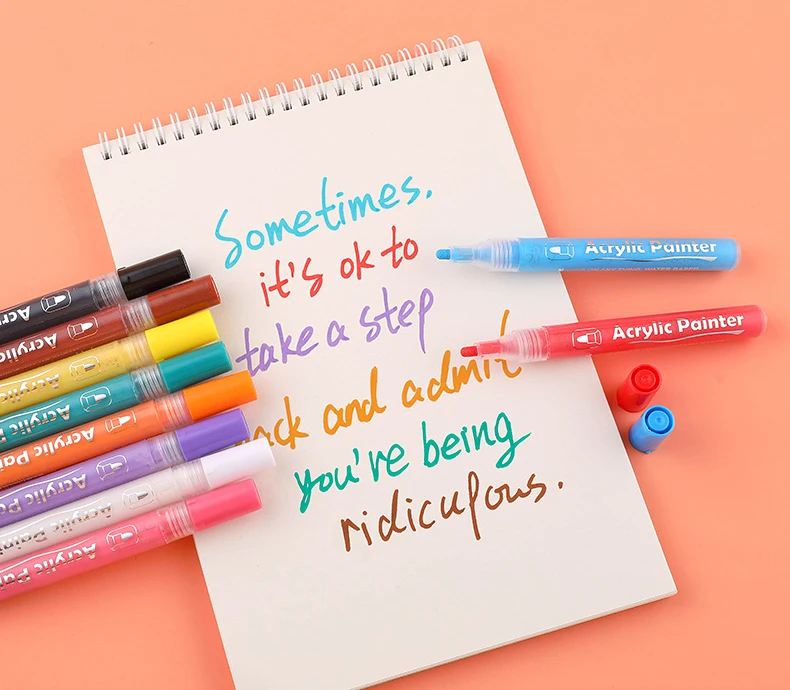 Sometimes.
it's ok to
take a step
back and admit
you're being
ridiculous.
Acrylic Painter
Acrylic Painter
Acry
Acrylic
Acrylic
Acrylic P
Acrylic Pai
Acrylic Pa
Acrylic Paint
Acrylic Pa